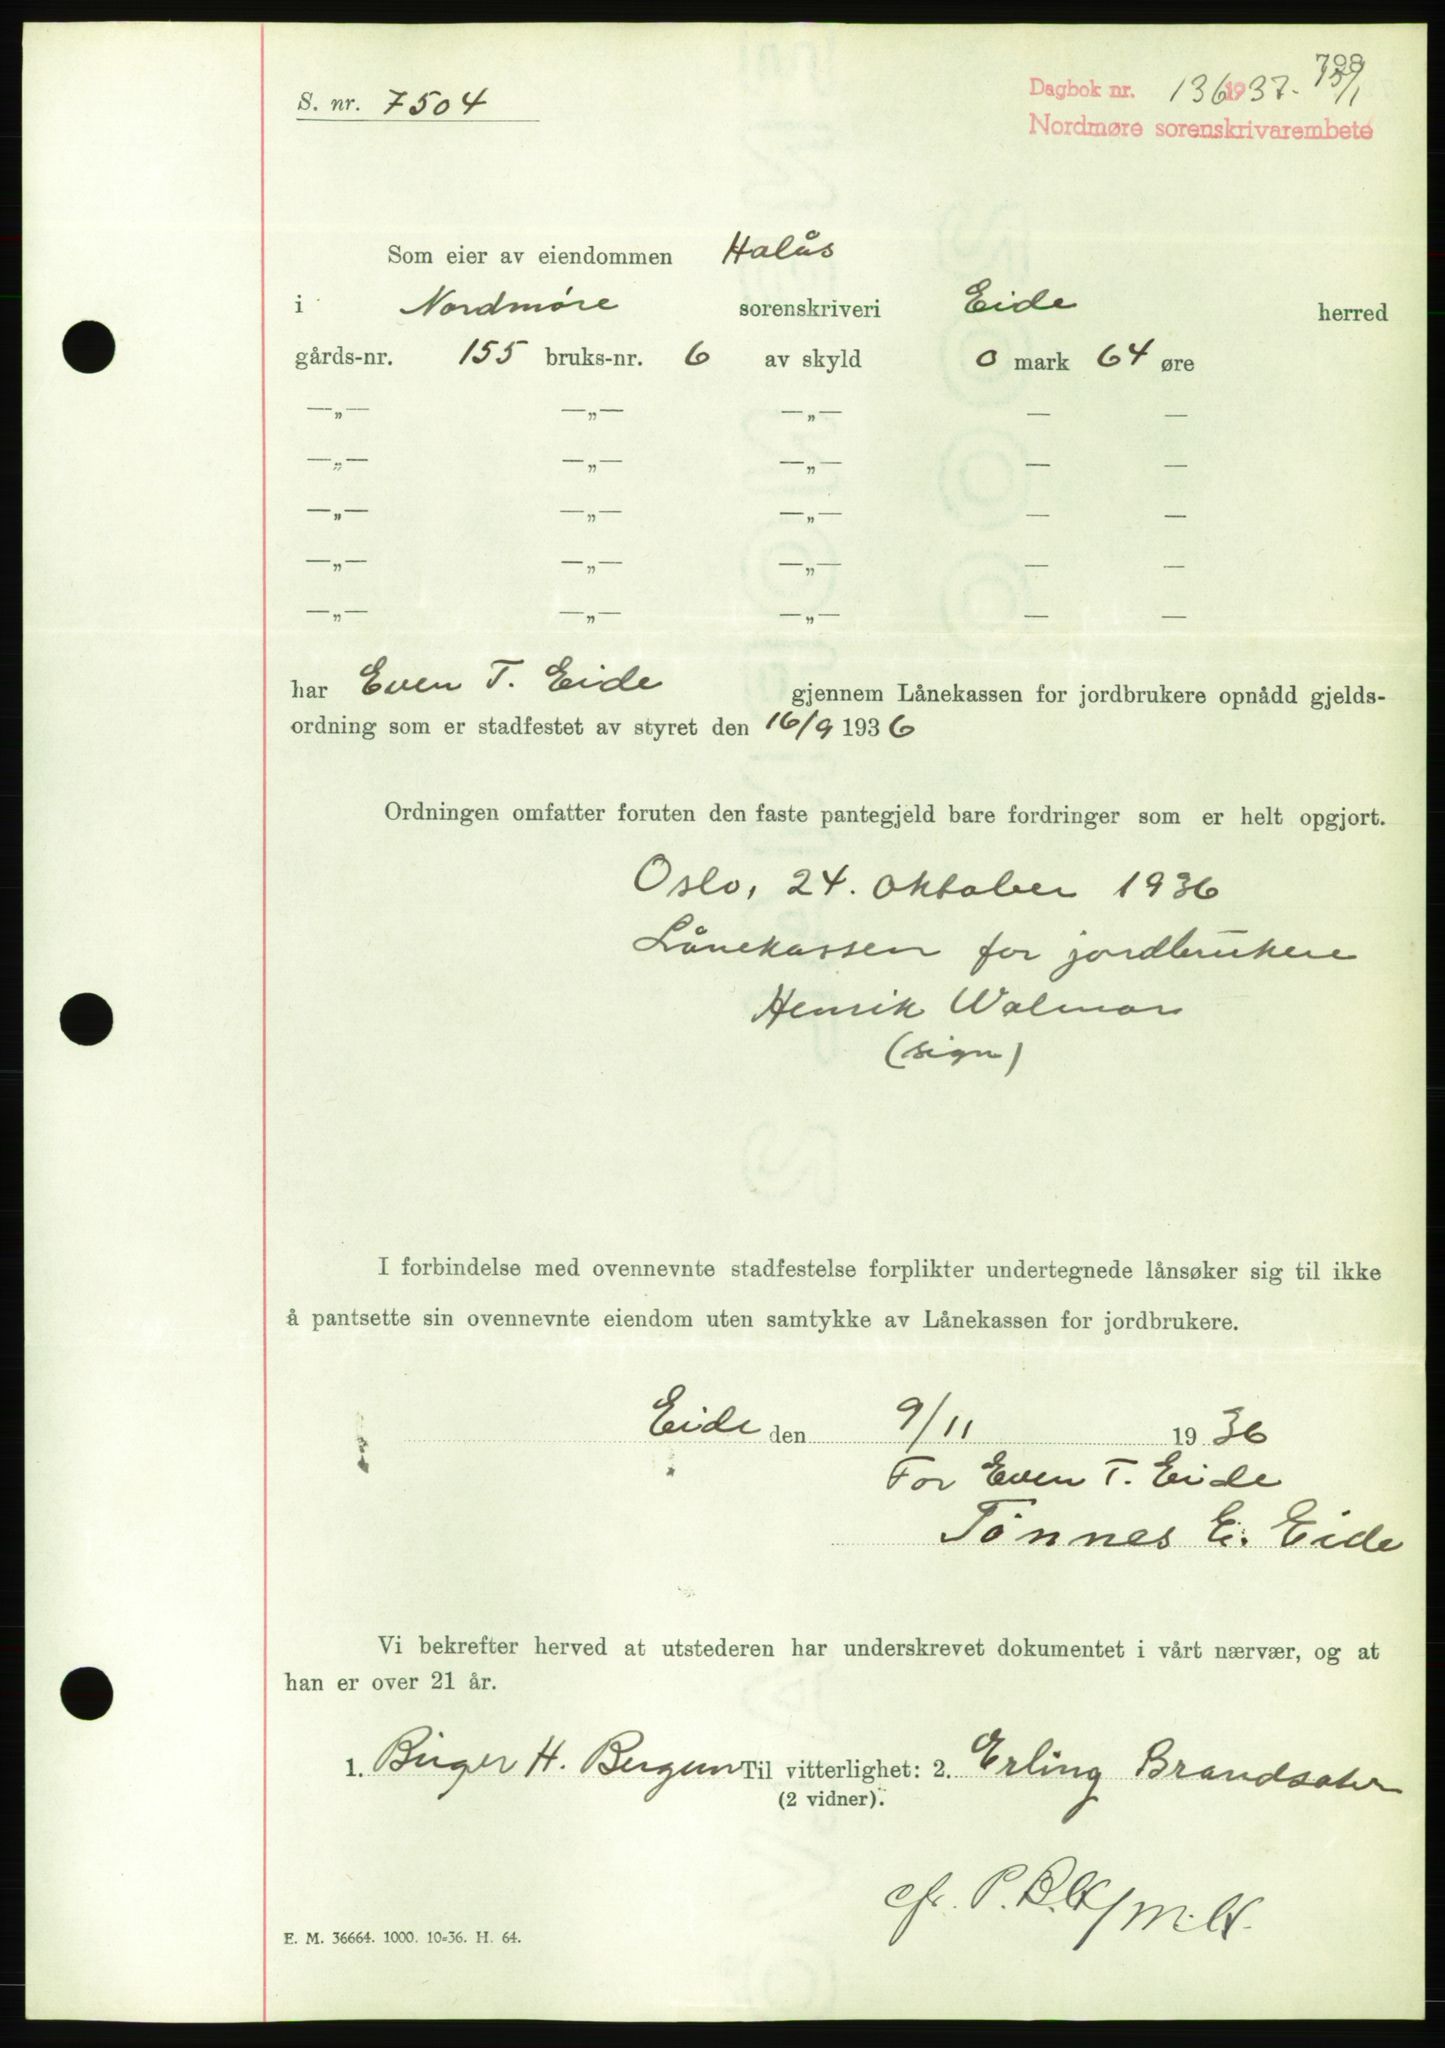 788
S. nr. 7504
Dagbok nr. 136 1937. 15/1
Nordmøre sorenskrivarembete
Som eier av eiendommen Halås
i Nordmøre sorenskriveri Eide herred
gårds-nr. 155 bruks-nr. 6 av skyld 0 mark 64 øre
—„— —„— —„— — —
—„— —„— —„— — —
—„— —„— —„— — —
—„— —„— —„— — —
—„— —„— —„— — —
har Even T. Eide gjennem Lånekassen for jordbrukere opnådd gjelds-
ordning som er stadfestet av styret den 16/9 1936
Ordningen omfatter foruten den faste pantegjeld bare fordringer som er helt opgjort.
Oslo, 24. oktober 1936
Lånekassen for jordbrukere
Henrik Walmar
(sign)
I forbindelse med ovennevnte stadfestelse forplikter undertegnede lånsøker sig til ikke
å pantsette sin ovennevnte eiendom uten samtykke av Lånekassen for jordbrukere.
Eide den 9/11 1936
For Even T. Eide
Tönnes E. Eide
Vi bekrefter herved at utstederen har underskrevet dokumentet i vårt nærvær, og at
han er over 21 år.
1. Birger H. Til vitterlighet: 2. Erling Brandsater
(2 vidner).
cfr. P.
E. M. 36664. 1000. 10-36. H. 64.